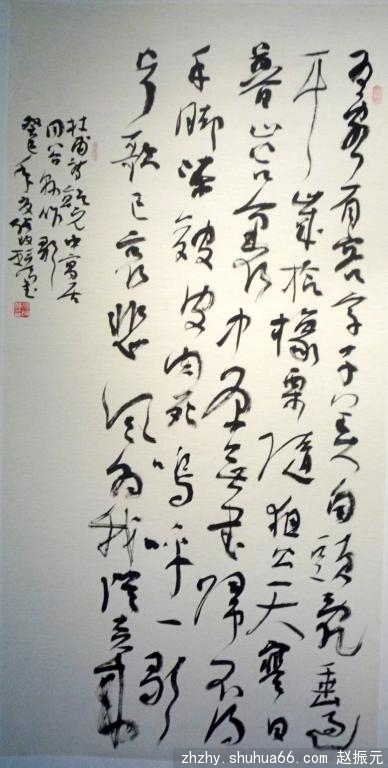 有客有客字子美白頭亂垂過
耳歲拾橡栗隨狙公天寒日
暮山谷里中原無書歸不得
手脚凍皴皮肉死嗚呼一歌
兮歌已哀悲風為我從天來
杜甫詩乾元中寓居
同谷縣作歌
癸巳年夏
zhzhy.shuhua66.com 赵振元